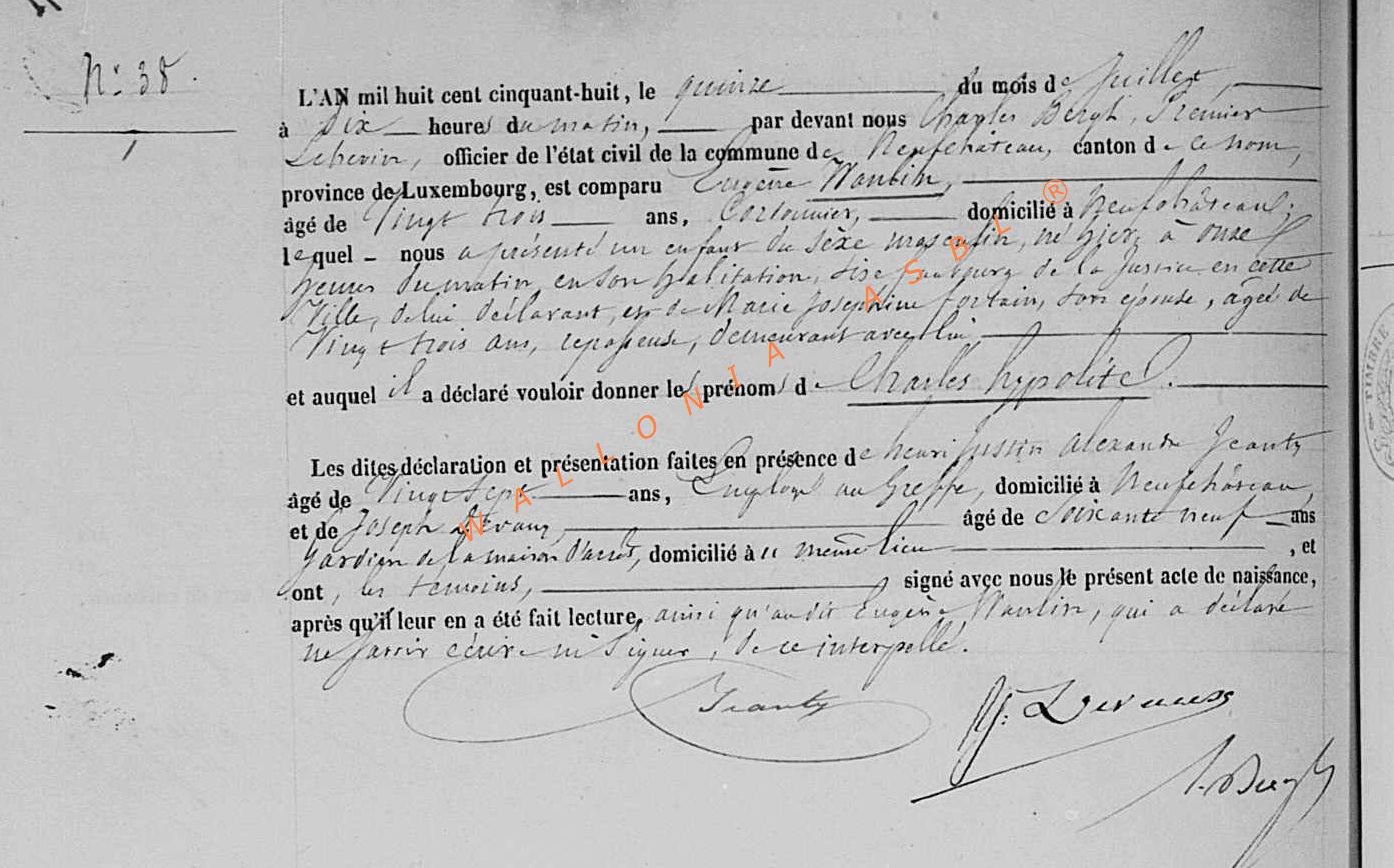 N: 38.
L'AN mil huit cent cinquant-huit, le quinze du mois de Juillet,
à Dix heures du matin, par devant nous Charles Bergh, Premier
Echevin, officier de l'état civil de la commune de Neufchateau, canton de ce nom,
province de Luxembourg, est comparu Eugène Waulin,
âgé de Vingt trois ans, Cordonnier, domicilié à Neufchâteau,
lequel - nous a présenté un enfant du sèxe masculin, né hier, à onze
heures du matin, en son habitation, sise faubourg de la Justice en cette
Ville, de lui déclarant, et de Marie Josephine Fortain, son épouse, âgée de
Vingt trois ans, repasseuse, demeurant avec lui,
et auquel il a déclaré vouloir donner les prénoms de Charles hypolite.
Les dites déclaration et présentation faites en présence de henri Justin Alexandre Jeanty
âgé de Vingt Sept ans, Employé au Greffe, domicilié à Neufchâteau,
et de Joseph âgé de Soixante neuf ans
gardien de la maison d'arrêt, domicilié à même lieu , et
ont, les témoins, signé avec nous le présent acte de naissance,
après qu'il leur en a été fait lecture, ainsi qu'audit Eugène Waulin, qui a déclaré
ne savoir écrire ni signer, de ce interpellé.
Jeanty
WALLONIA ASBL ®